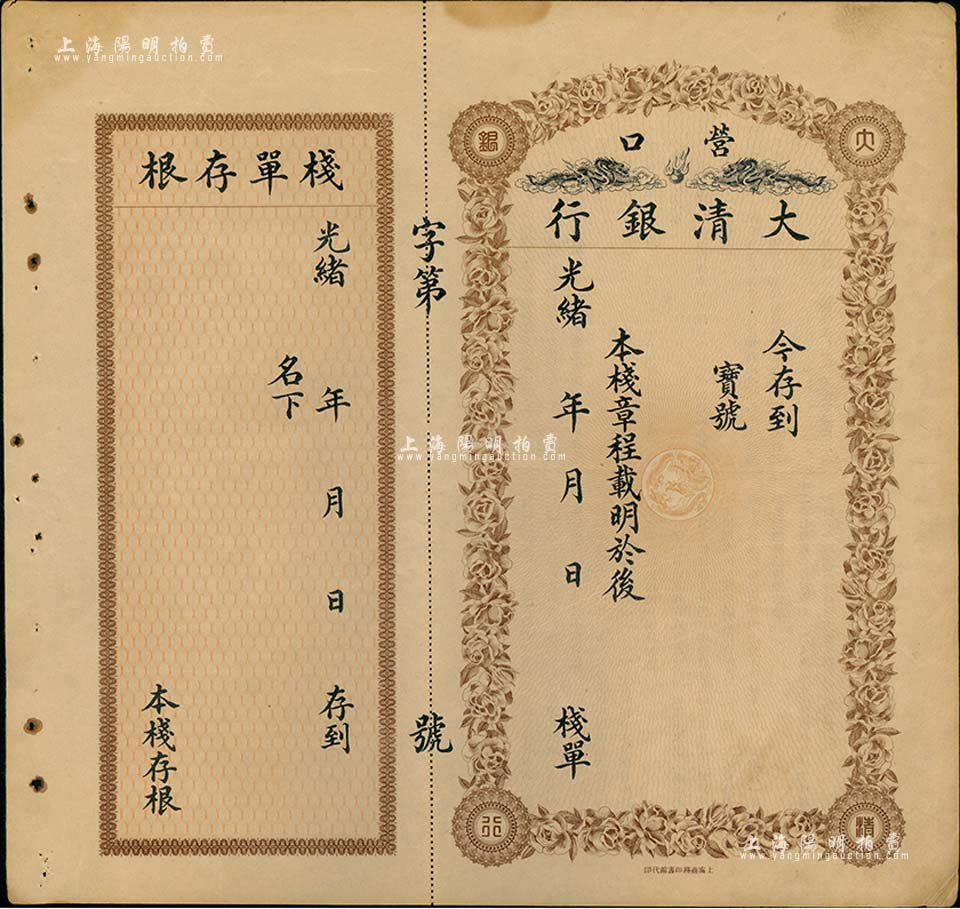 上海陽明拍賣
www.yangmingauction.com
營口
大清銀行
大
清
銀
行
今存到
寶號
本棧章程載明於後
光緒 年 月 日 棧單
字第 號
棧單存根
光緒 年 月 日 存到
名下
本棧存根
上海陽明拍賣
www.yangmingauction.com
上海陽明拍賣
www.yangmingauction.com
上海商務印書館代印